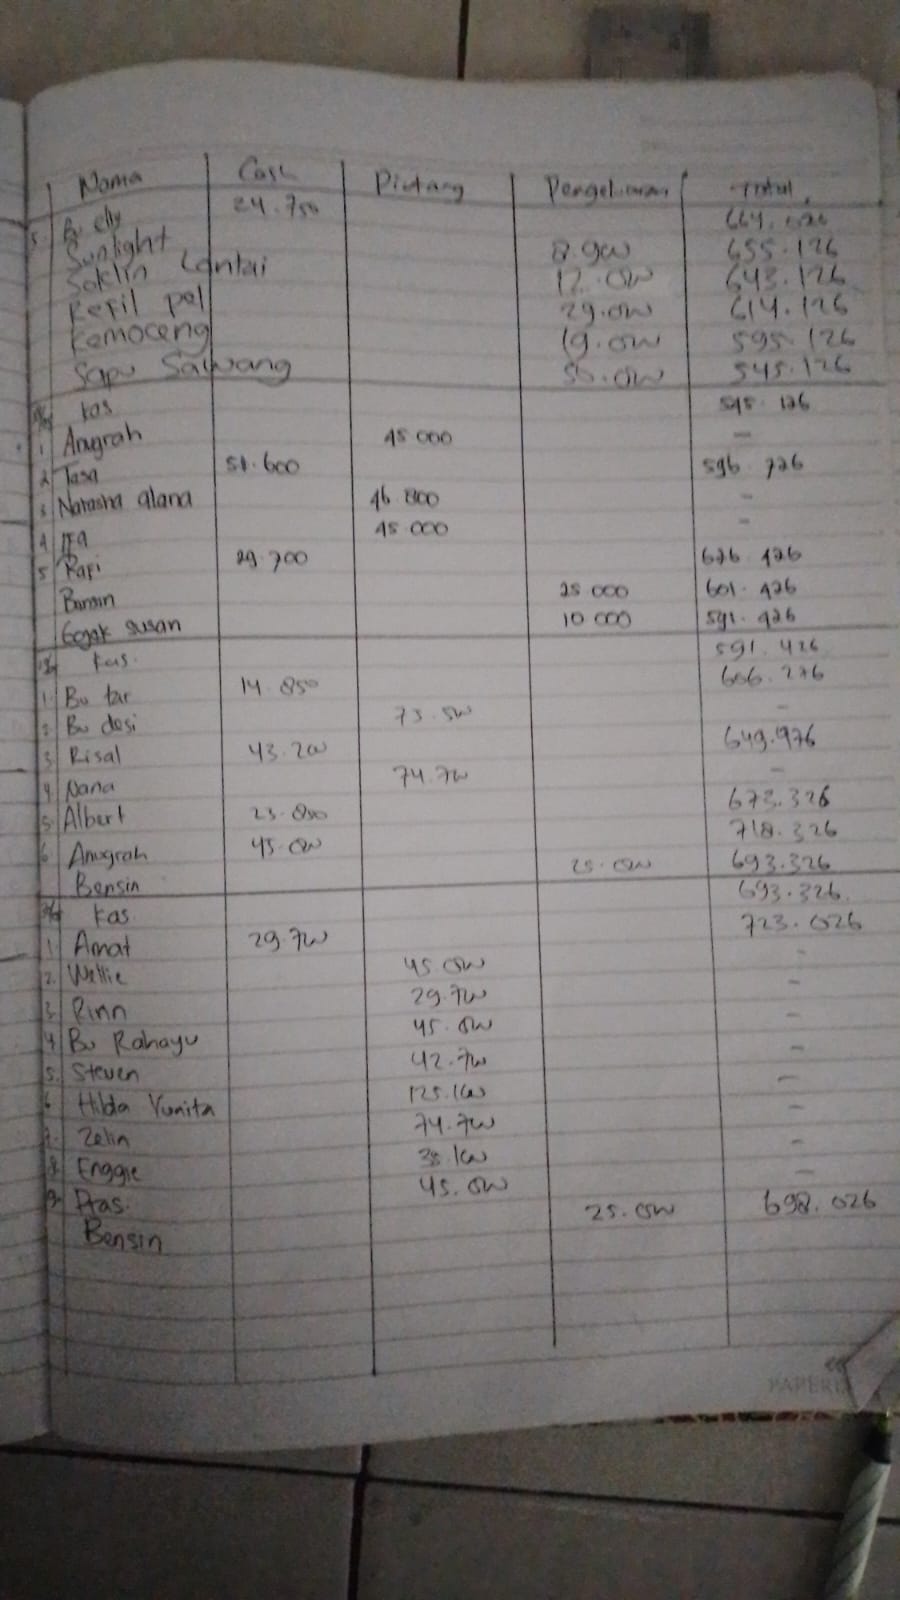 Nama Cash Piutang Pengeluaran Total
5. Bu elly 24.750 664.026
Sunlight 8.900 655.126
Soklin Lantai 12.000 643.126
Refil pel 29.000 614.126
Kemoceng 19.000 595.126
Sapu Sawang 50.000 545.126
Kas 545.126
1 Anugrah 45 000 —
2 Tasa 51.600 596.726
3 Natasha alana 46.800 -
4 45.000 -
5 Rafi 29.700 626.426
Bensin 25 000 601.426
Gojek susan 10 000 591.426
Kas. 591.426
1. Bu tar 14.850 606.276
2. Bu desi 73.500 -
3. Risal 43.200 649.976
4. Nana 74.700 -
5. Albert 23.850 673.326
6 Anugrah 45.000 718.326
Bensin 25.000 693.326
Kas 693.326
1. Amat 29.700 723.026
2. Wellie 45.000 -
3. Rinn 29.700 -
4 Bu Rahayu 45.000 -
5. Steven 42.700 -
6 Hilda Yunita 125.100 -
7. Zelin 74.700 -
8. Enggie 38.100 -
9. Pras. 45.000 -
Bensin 25.000 698.026